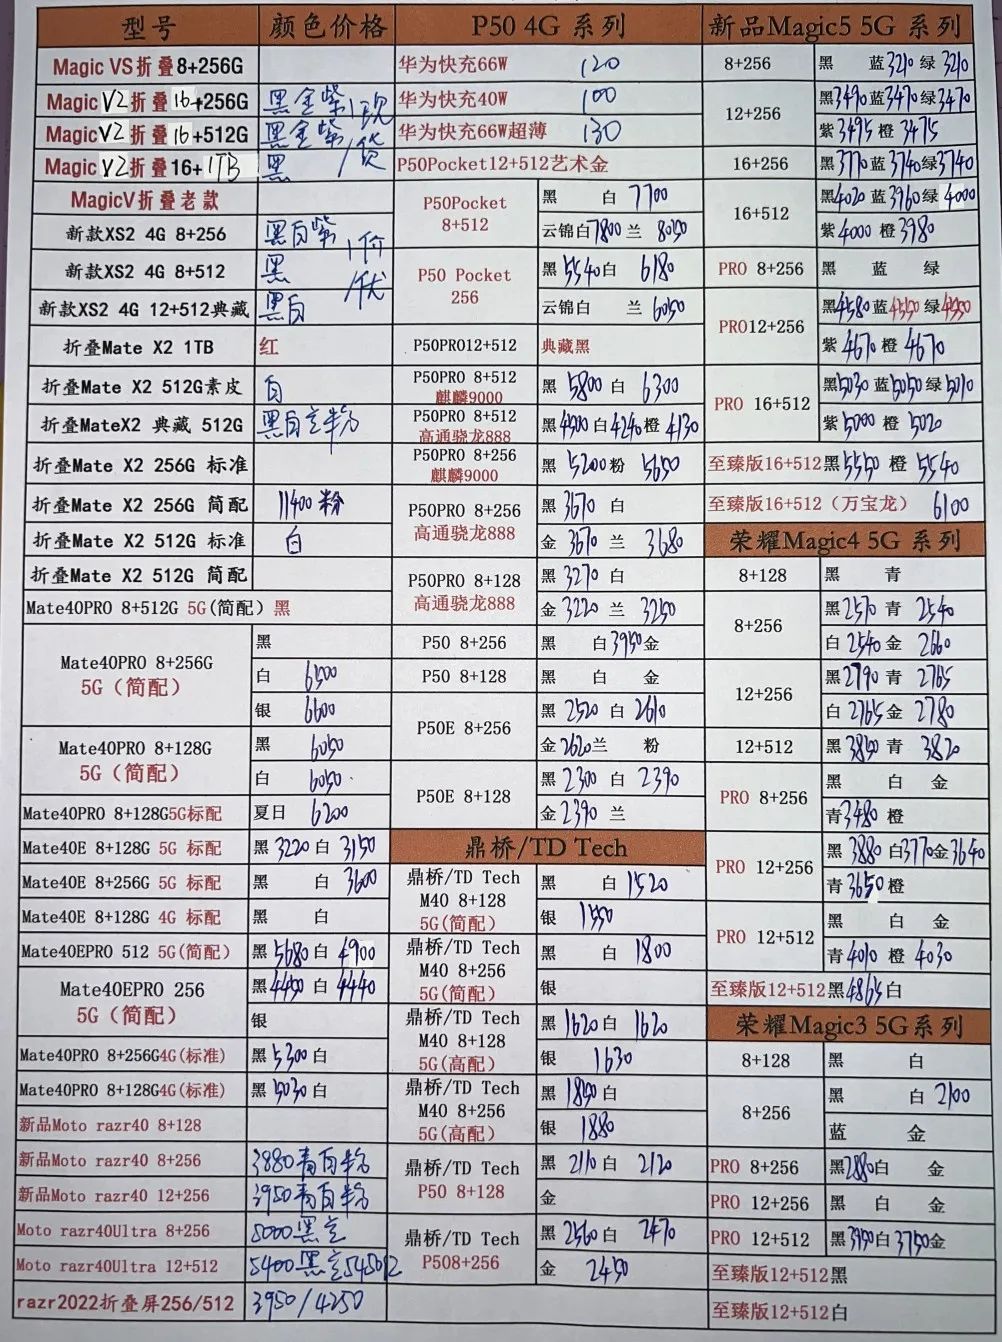 型号 颜色价格
Magic VS折叠8+256G
Magic V2折叠16+256G 黑金紫
Magic V2折叠16+512G 黑金紫
Magic V2折叠16+1TB 黑
现货
MagicV折叠老款
新款XS2 4G 8+256 黑白紫
新款XS2 4G 8+512 黑
新款XS2 4G 12+512典藏 黑白
价优
折叠Mate X2 1TB 红
折叠Mate X2 512G素皮 白
折叠MateX2 典藏 512G 黑白
折叠Mate X2 256G 标准
折叠Mate X2 256G 简配 11400 粉
折叠Mate X2 512G 标准 白
折叠Mate X2 512G 简配
Mate40PRO 8+512G 5G(简配) 黑
Mate40PRO 8+256G
5G（简配）
黑
白 6500
银 6600
Mate40PRO 8+128G
5G（简配）
黑 6050
白 6050
Mate40PRO 8+128G5G标配 夏日 6200
Mate40E 8+128G 5G 标配 黑 3220 白 3150
Mate40E 8+256G 5G 标配 黑 白 3600
Mate40E 8+128G 4G 标配 黑 白
Mate40EPRO 512 5G(简配) 黑 5680 白 4900
Mate40EPRO 256
5G（简配）
黑 4450 白 4440
银
Mate40PRO 8+256G4G(标准) 黑 5300 白
Mate40PRO 8+128G4G(标准) 黑 5030 白
新品Moto razr40 8+128
新品Moto razr40 8+256 3880青白粉
新品Moto razr40 12+256 3950青白粉
Moto razr40Ultra 8+256 5000黑
Moto razr40Ultra 12+512 5400黑
razr2022折叠屏256/512 3950/4250
P50 4G 系列
华为快充66W 120
华为快充40W 100
华为快充66W超薄 130
P50Pocket12+512艺术金
P50Pocket
8+512
黑 白 7700
云锦白 7800 兰 8050
P50 Pocket
256
黑 5540 白 6180
云锦白 兰 6050
P50PRO12+512 典藏黑
P50PRO 8+512
麒麟9000
黑 5800 白 6300
P50PRO 8+512
高通骁龙888
黑 4900 白 4240 橙 4130
P50PRO 8+256
麒麟9000
黑 5200 粉 5650
P50PRO 8+256
高通骁龙888
黑 3670 白
金 3670 兰 3680
P50PRO 8+128
高通骁龙888
黑 3270 白
金 3220 兰 3250
P50 8+256 黑 白 3950 金
P50 8+128 黑 白 金
P50E 8+256
黑 2520 白 2610
金 2620 兰 粉
P50E 8+128
黑 2300 白 2390
金 2390 兰
鼎桥/TD Tech
鼎桥/TD Tech
M40 8+128
5G(简配)
黑 白 1520
银 1550
鼎桥/TD Tech
M40 8+256
5G(简配)
黑 白 1800
银
鼎桥/TD Tech
M40 8+128
5G(高配)
黑 1620 白 1620
银 1630
鼎桥/TD Tech
M40 8+256
5G(高配)
黑 1850 白
银 1880
鼎桥/TD Tech
P50 8+128
黑 2110 白 2120
金
鼎桥/TD Tech
P508+256
黑 2560 白 2470
金 2450
新品Magic5 5G 系列
8+256 黑 蓝 3210 绿 3210
12+256
黑 3490 蓝 3470 绿 3470
紫 3495 橙 3475
16+256 黑 3770 蓝 3740 绿 3740
16+512
黑 4020 蓝 3960 绿 4000
紫 4000 橙 3980
PRO 8+256 黑 蓝 绿
PRO12+256
黑 4580 蓝 4550 绿 4550
紫 4670 橙 4670
PRO 16+512
黑 5030 蓝 5050 绿 5010
紫 5000 橙 5020
至臻版16+512 黑 5550 橙 5540
至臻版16+512（万宝龙） 6100
荣耀Magic4 5G 系列
8+128 黑 青
8+256
黑 2570 青 2540
白 2540 金 2660
12+256
黑 2790 青 2765
白 2765 金 2780
12+512 黑 3850 青 3820
PRO 8+256
黑 白 金
青 3480 橙
PRO 12+256
黑 3880 白 3770 金 3640
青 3650 橙
PRO 12+512
黑 白 金
青 4010 橙 4030
至臻版12+512 黑 4865 白
荣耀Magic3 5G系列
8+128 黑 白
8+256
黑 白 2100
蓝 金
PRO 8+256 黑 2880 白 金
PRO 12+256 黑 白 金
PRO 12+512 黑 3950 白 3750 金
至臻版12+512黑
至臻版12+512白